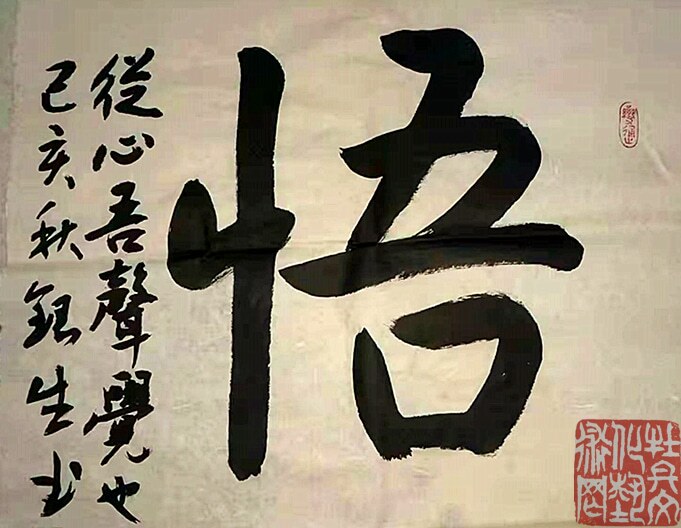 悟
從心吾聲覺也
己亥秋銀生书